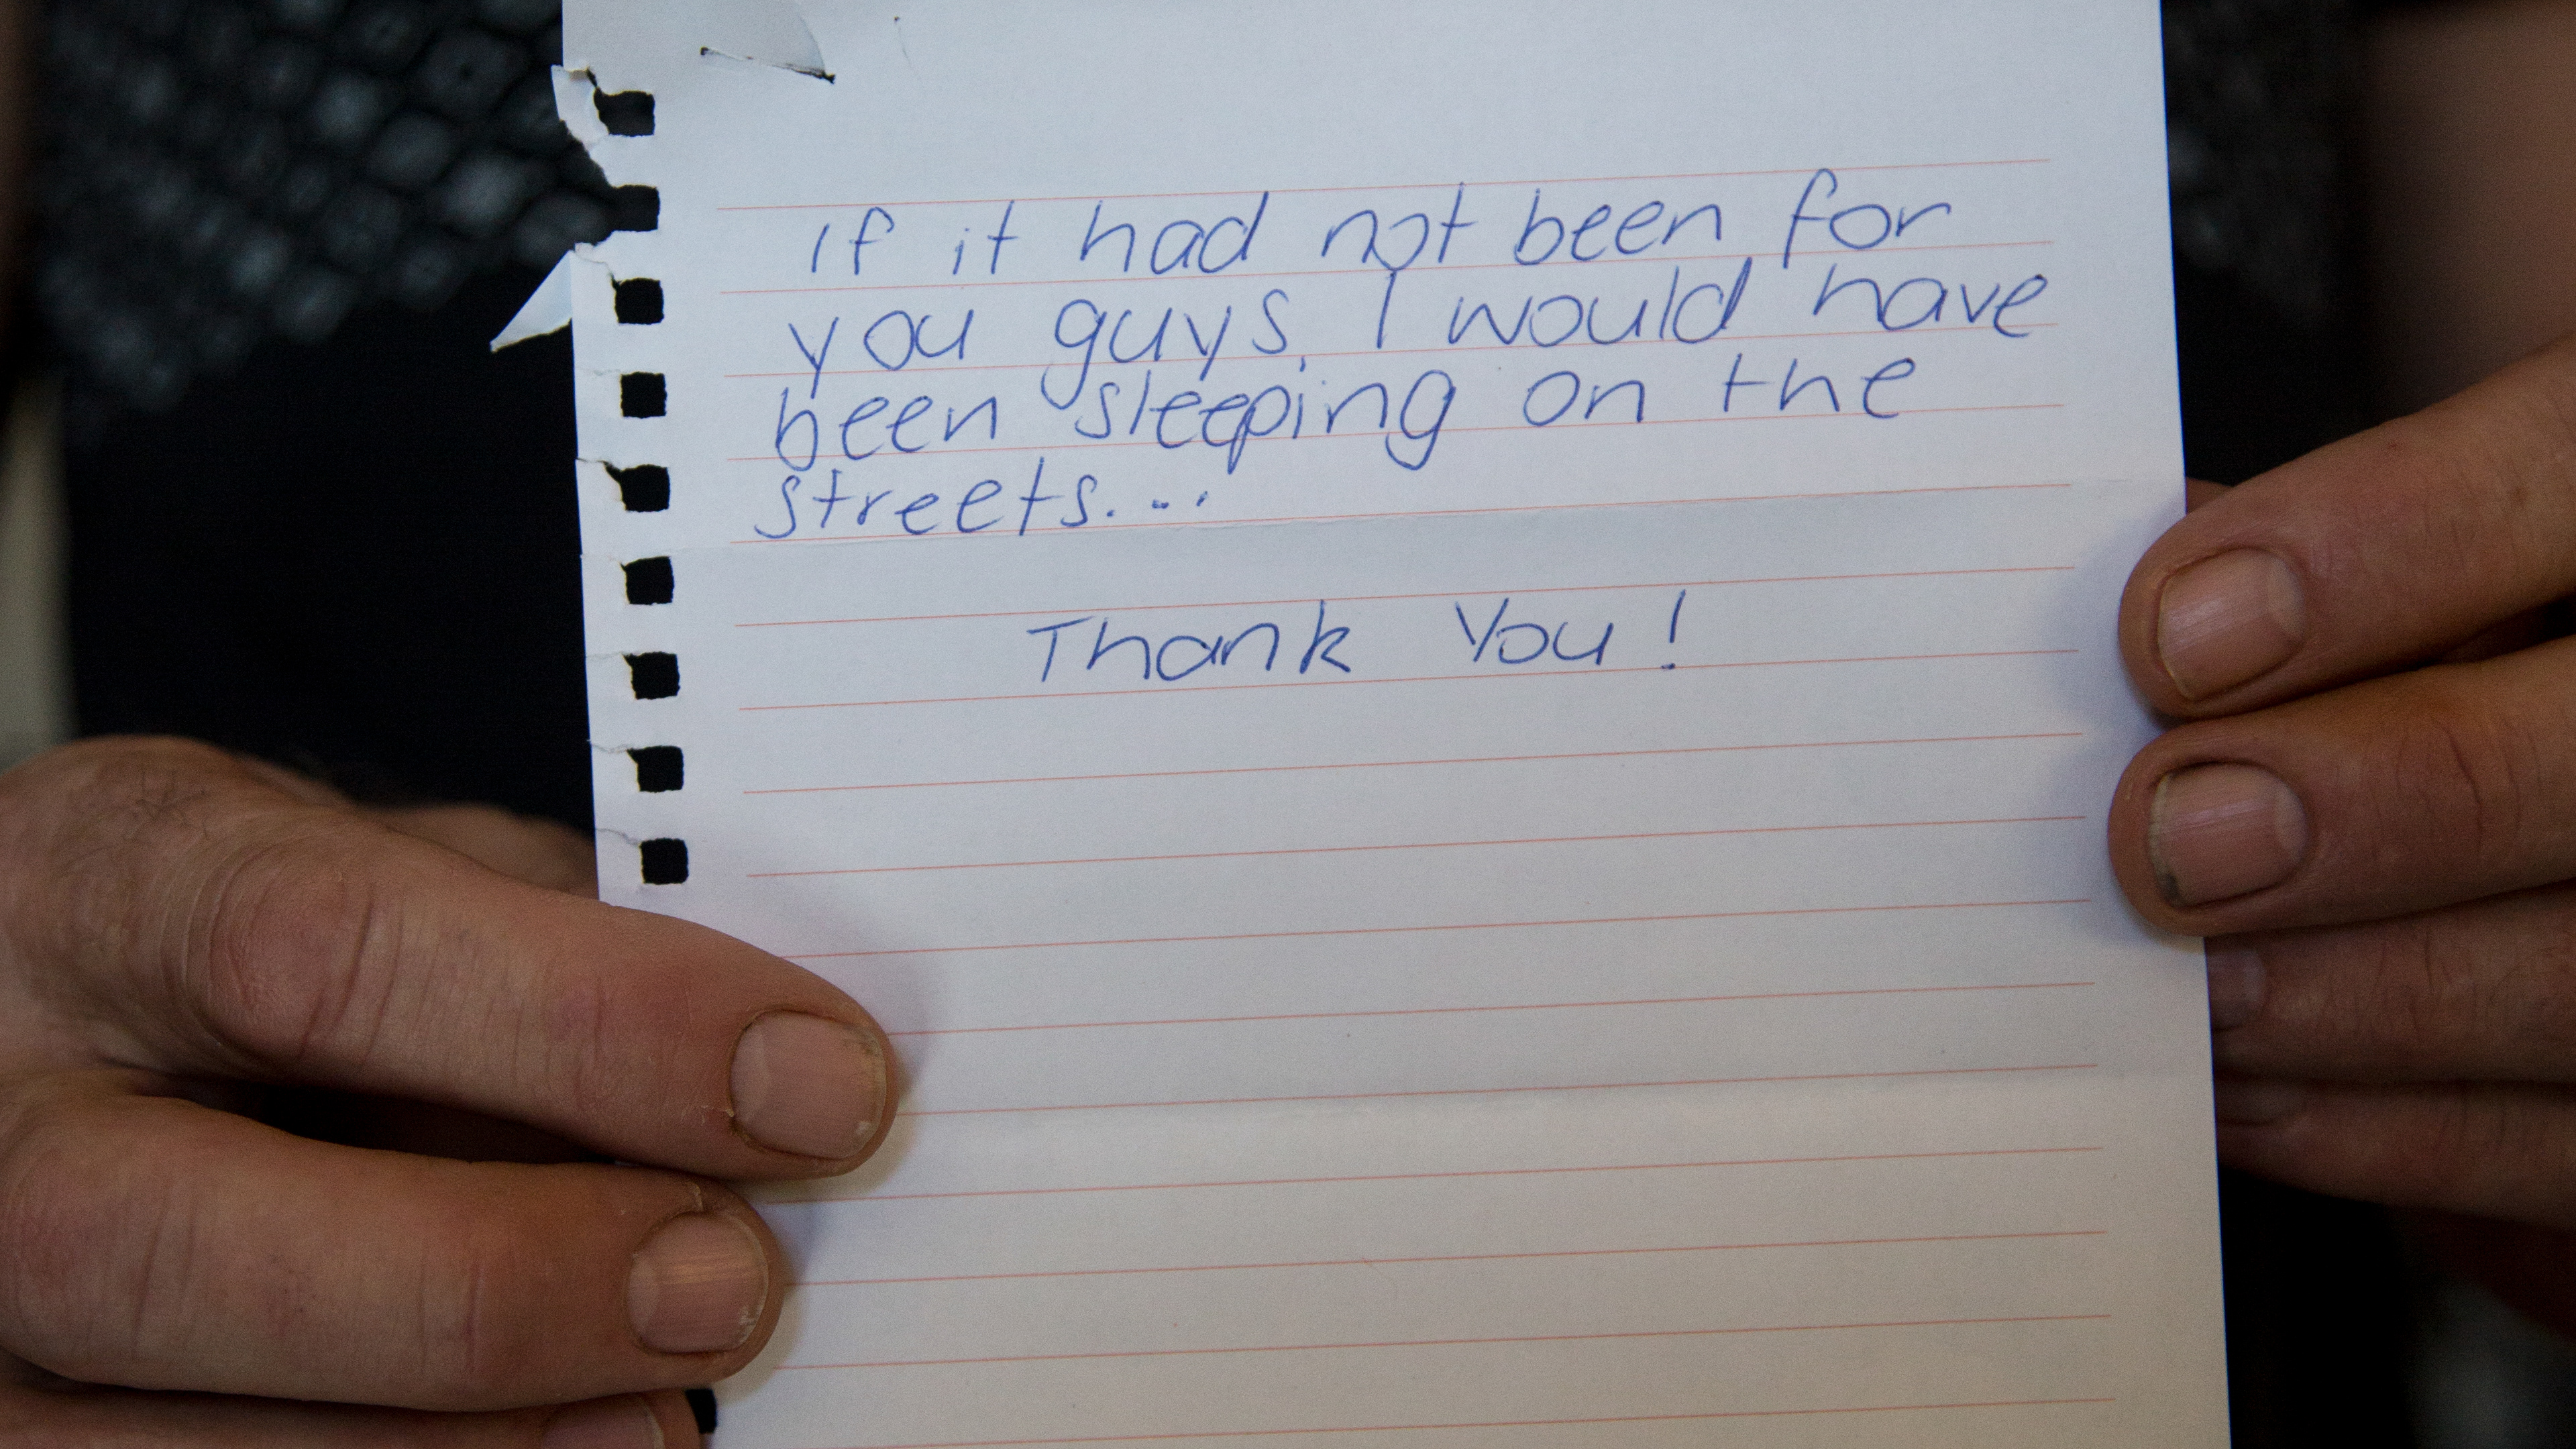 If it had not been for
you guys, I would have
been sleeping on the
streets...
Thank You!